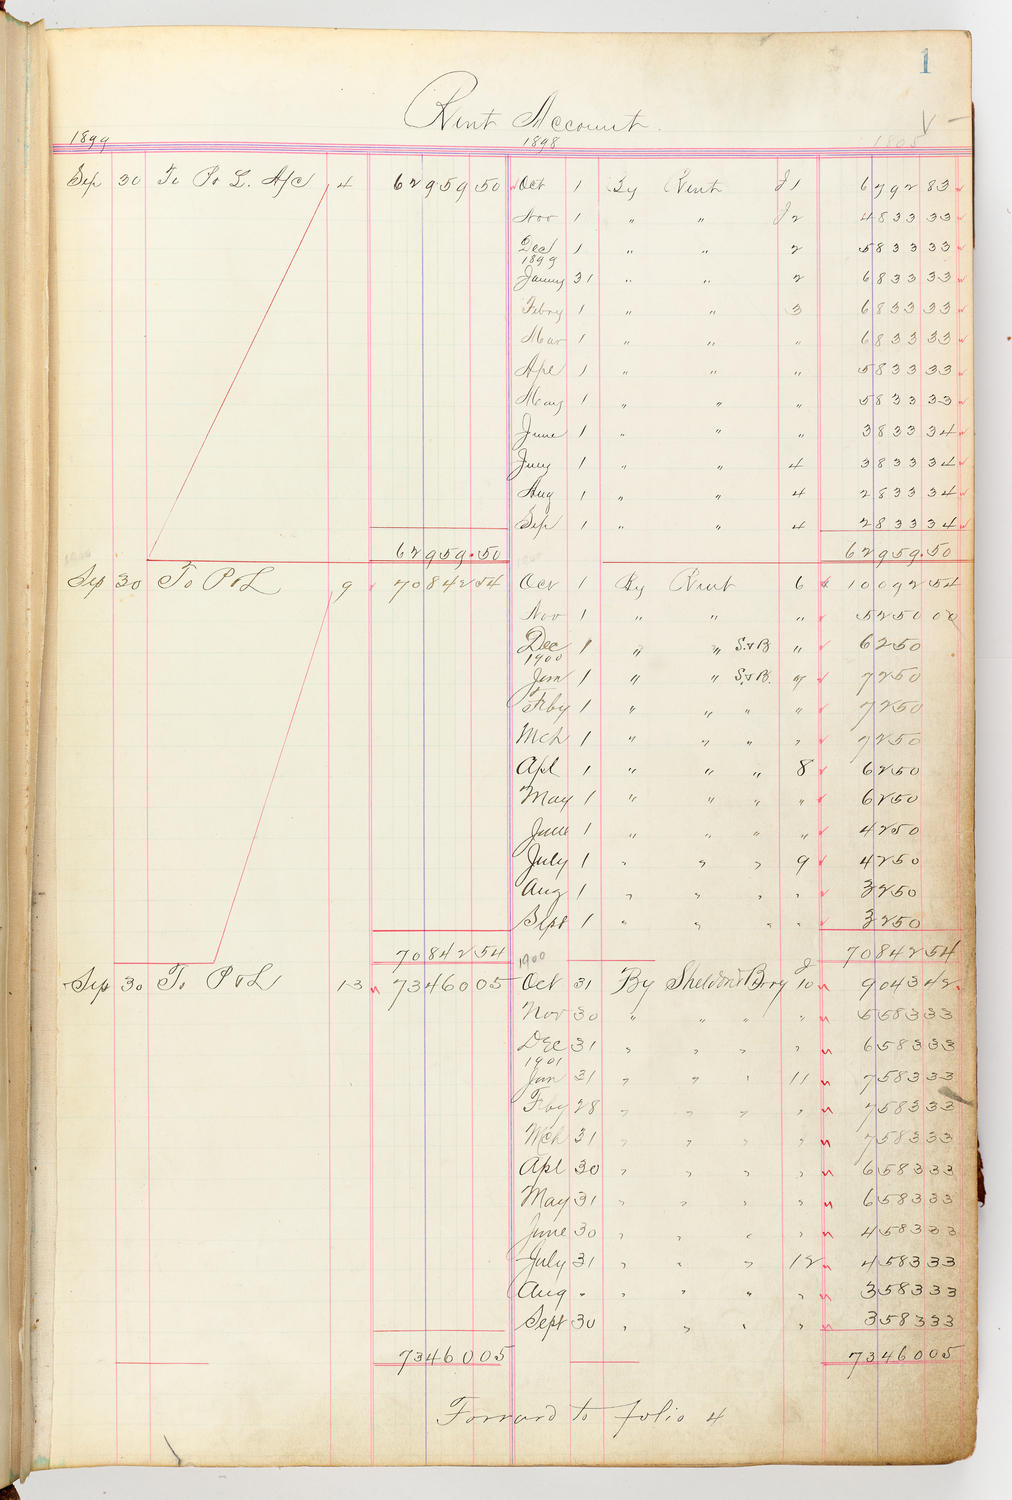 1
Rent Account.
1899 1898
Sep 30 To P & L. A/c 4 62959 50 Oct 1 By Rent J1 6792 83
Nov 1 " " J2 4833 33
Dec 1 " " 2 5833 33
1899
Janny 31 " " 2 6833 33
Febry 1 " " 3 6833 33
Mar 1 " " " 6833 33
Apl 1 " " " 5833 33
May 1 " " " 5833 33
June 1 " " " 3833 34
July 1 " " 4 3833 34
Aug 1 " " 4 2833 34
Sep 1 " " 4 2833 34
62959.50 62959.50
Sep 30 To P & L 9 70842 54 Oct 1 By Rent 6 $ 10092 54
Nov 1 " " " 5250 00
Dec 1 " " S.&B " 6250
1900
Jan 1 " " S.&B. 7 7250
Feby 1 " " " " 7250
Mch 1 " " " " 7250
Apl 1 " " " 8 6250
May 1 " " " " 6250
June 1 " " " " 4250
July 1 " " " 9 4250
Aug 1 " " " " 3250
Sept 1 " " " " 3250
70842 54 70842 54
1900
Sep 30 To P & L 13 73460 05 Oct 31 By Sheldon & Brry J 10 9043 42
Nov 30 " " " " 5583 33
Dec 31 " " " " 6583 33
1901
Jan 31 " " " 11 7583 33
Feby 28 " " " " 7583 33
Mch 31 " " " " 7583 33
Apl 30 " " " " 6583 33
May 31 " " " " 6583 33
June 30 " " " " 4583 33
July 31 " " " 12 4583 33
Aug " " " " " 3583 33
Sept 30 " " " " 3583 33
73460 05 73460 05
Forward to folio 4